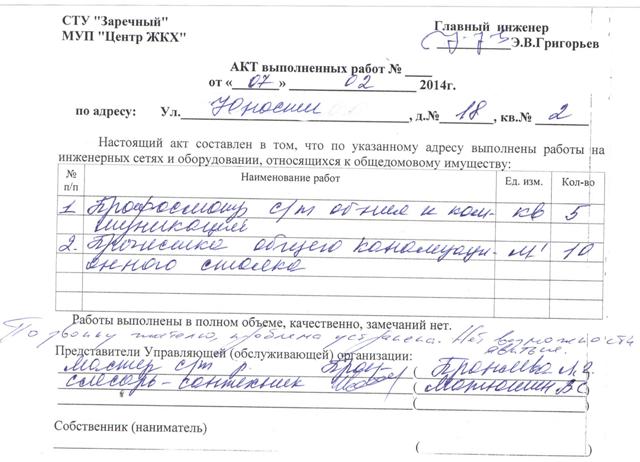 СТУ "Заречный"
МУП "Центр ЖКХ"
Главный инженер
Э.В.Григорьев
АКТ выполненных работ №
от «07» 02 2014г.
по адресу: Ул. Юности, д.№ 18, кв.№ 2
Настоящий акт составлен в том, что по указанному адресу выполнены работы на
инженерных сетях и оборудовании, относящихся к общедомовому имуществу:
№ п/п Наименование работ Ед. изм. Кол-во
1 Профосмотр с/т об-ния и ком- кв 5
муникаций
2. Прочистка общего канализаци- м' 10
онного стояка
Работы выполнены в полном объеме, качественно, замечаний нет.
По звонку жителю, проблема устранена. Нет возможности
явиться.
Представители Управляющей (обслуживающей) организации:
Мастер с/т р.
слесарь-сантехник (Матюшин В С)
Собственник (наниматель)